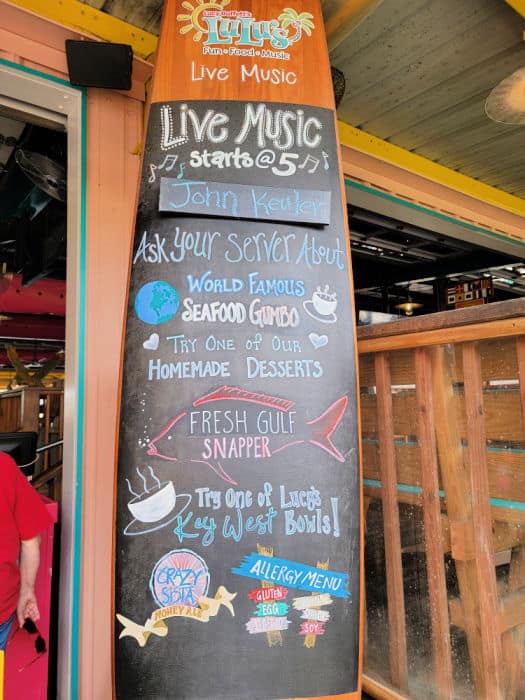 Lucy Buffett's
LuLu's
Fun • Food • Music
Live Music
Live Music
starts @ 5
John Keuler
Ask Your Server About
World Famous
Seafood Gumbo
Try One of Our
Homemade Desserts
Fresh Gulf
Snapper
Try One of Lucy's
Key West Bowls!
Crazy
Sista
Honey Ale
Allergy Menu
Gluten
Egg
Soy